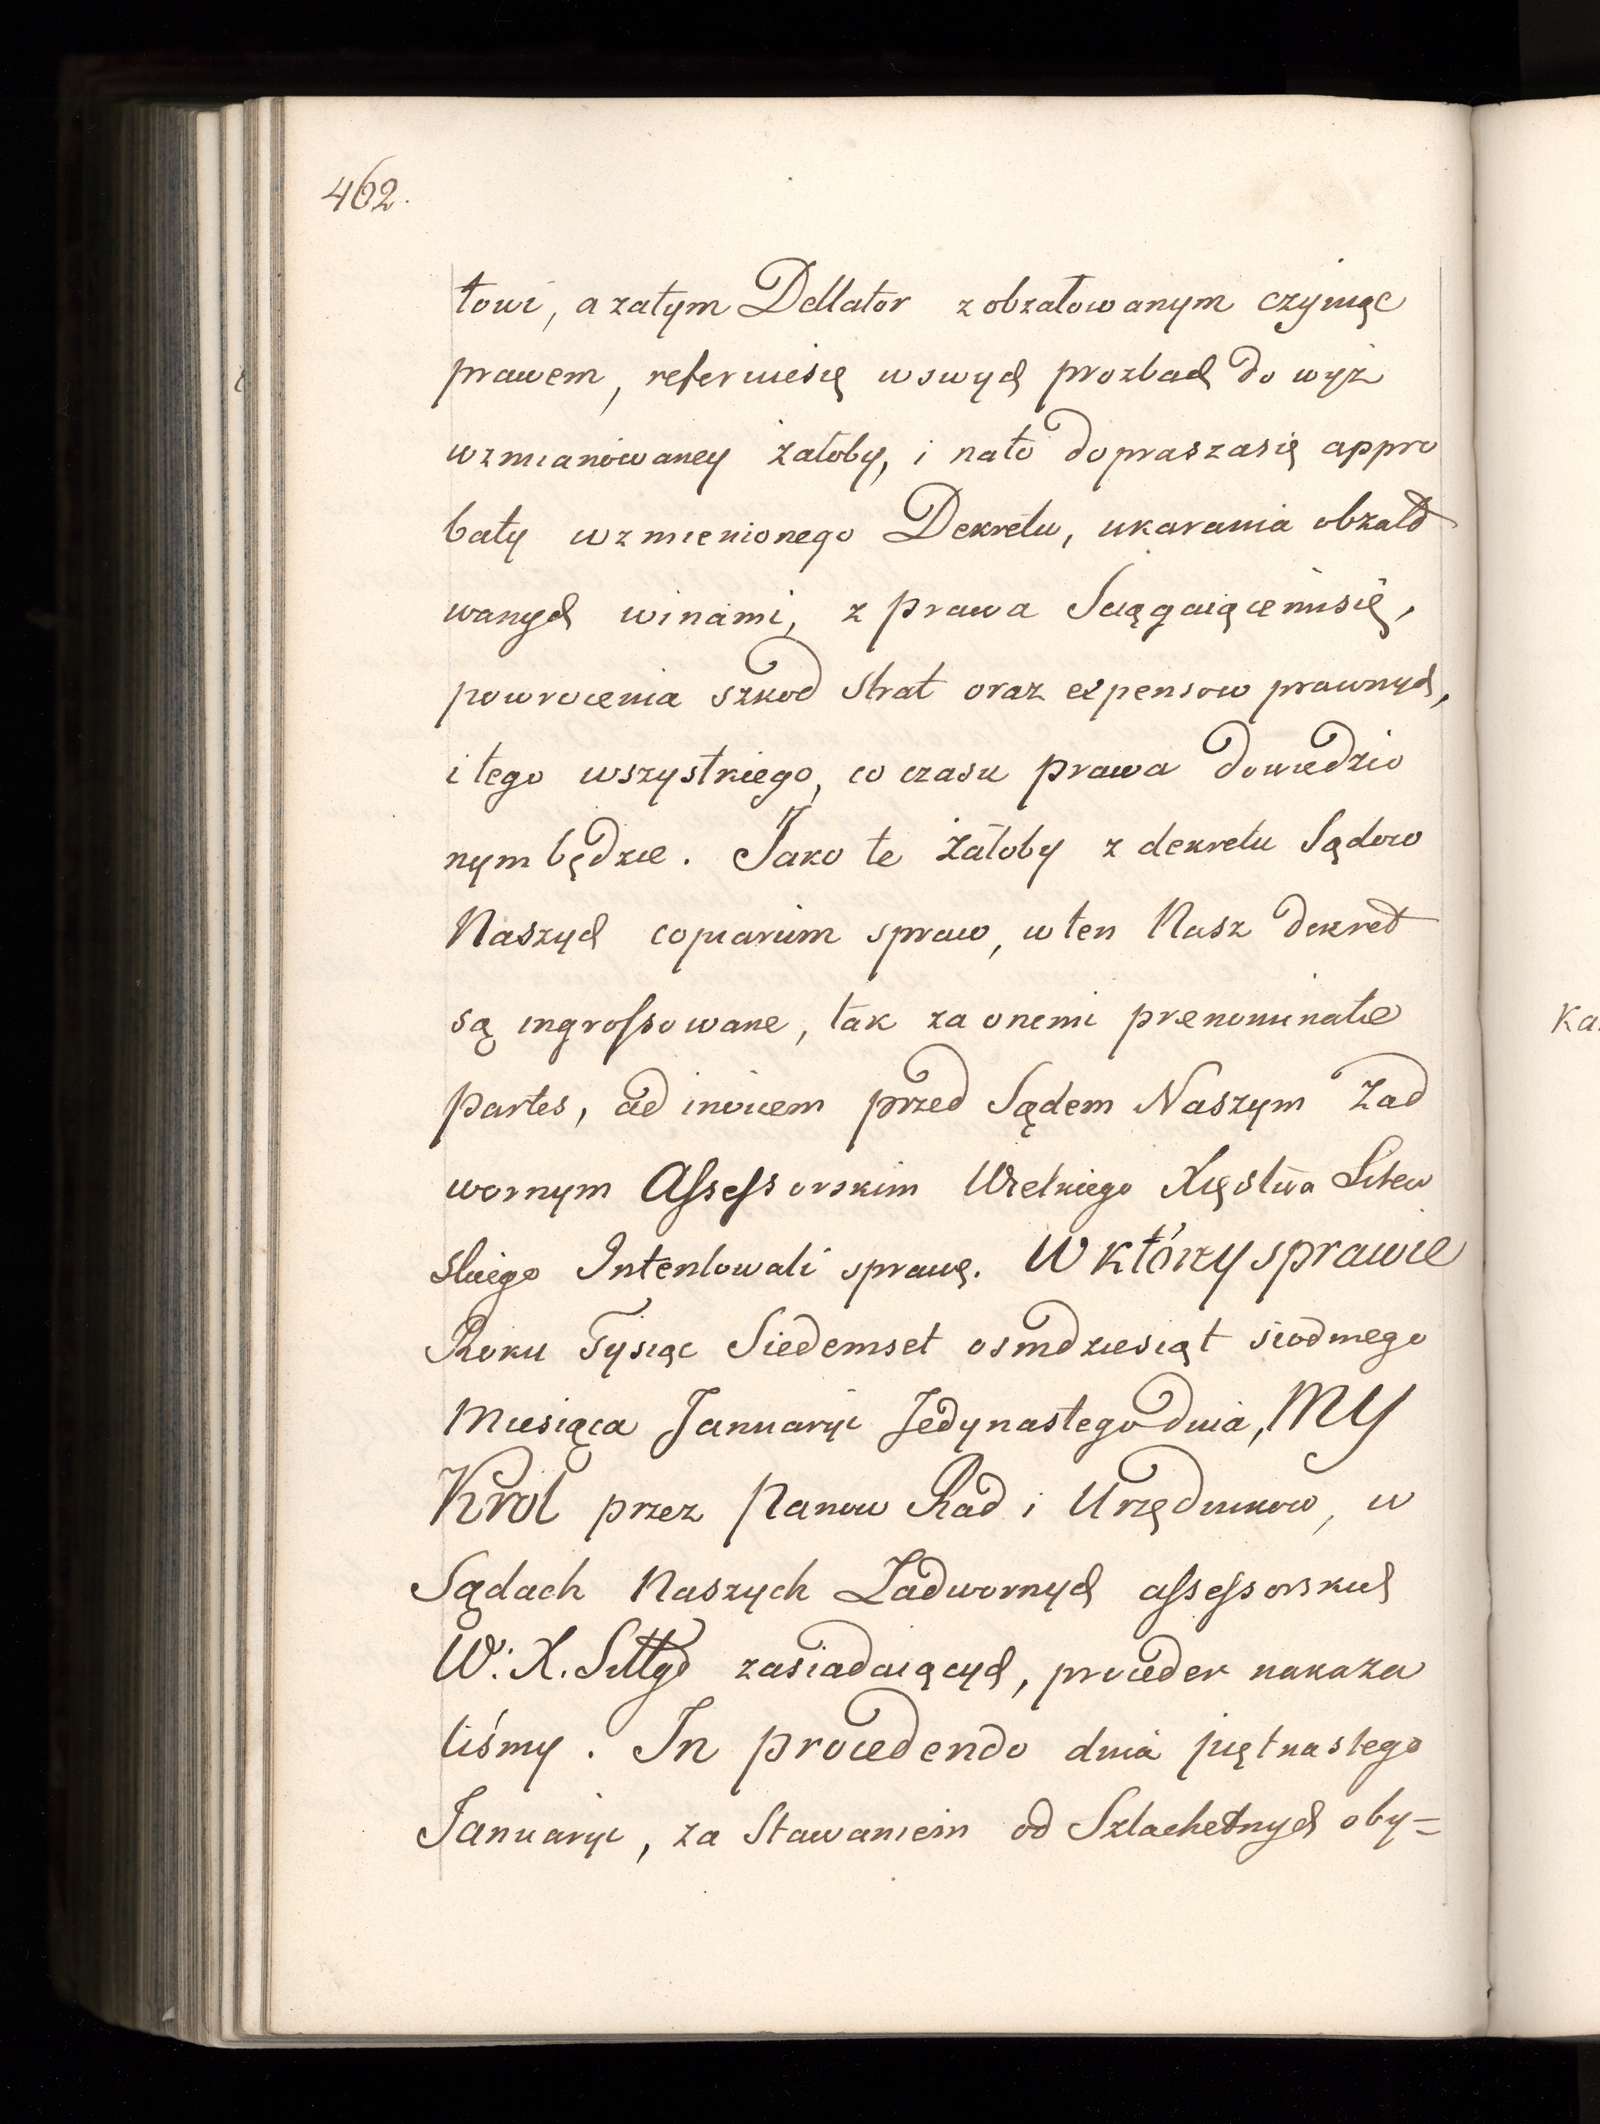 462.
towi, a zatym Dellator z obżałowanym czyniąc
prawem, referuiesię wswych prozbach do wyż
wzmianowaney żałoby, i nato dopraszasię appro
baty wzmienionego Dekretu, ukarania obżało
wanych winami, z prawa Sciągaiącemisię,
powrocenia szkod strat oraz expensow prawnych,
i tego wszystkiego, co czasu prawa dowiedzio
nym będzie. Jako te żałoby z dekretu Sądow
Naszych copiarum spraw, w ten Nasz dekret
są ingrossowane, tak za onemi prenominatæ
partes, ad invicem przed Sądem Naszym Zad
wornym Assessorskim Wielkiego Xięstwa Litew
skiego Intentowali sprawę. W którey sprawie
Roku Tysiąc Siedemset osmdziesiąt siodmego
Miesiąca Januaryi Jedynastego dnia, MY
Krol przez Panow Rad i Urzędnikow, w
Sądach Naszych Zadwornych assessorskich
W. X. Litt zasiadaiących, proceder nakaza
liśmy. In procedendo dnia piętnastego
Januaryi, za Stawaniem od Szlachetnych oby=
Ka